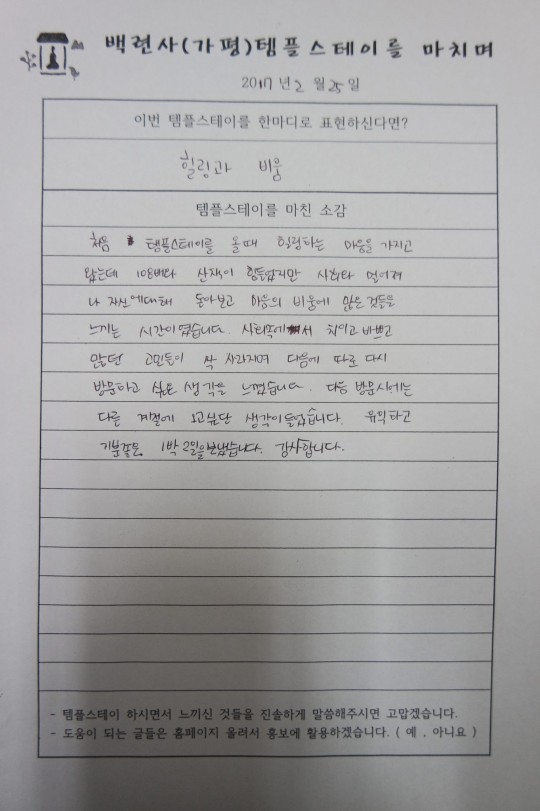 백련사(가평)템플스테이를 마치며
2017년 2월 25일
이번 템플스테이를 한마디로 표현하신다면?
힐링과 비움
템플스테이를 마친 소감
처음 템플스테이를 올때 힐링하는 마음을 가지고
왔는데 108배와 산재이 힘들었지만 사회와 멀어져
나 자신에대해 돌아보고 마음의 비움에 많은것들을
느끼는 시간이였습니다. 사회속에서 치이고 바쁘고
많던 고민들이 싹 사라지며 다음에 따로 다시
방문하고 싶은 생각을 느꼈습니다. 다음 방문시에는
다른 계절에 오고싶단 생각이들었습니다. 유익하고
기분좋은 1박 2일을보냈습니다. 감사합니다.
- 템플스테이 하시면서 느끼신 것들을 진솔하게 말씀해주시면 고맙겠습니다.
- 도움이 되는 글들은 홈페이지 올려서 홍보에 활용하겠습니다. ( 예 , 아니요 )